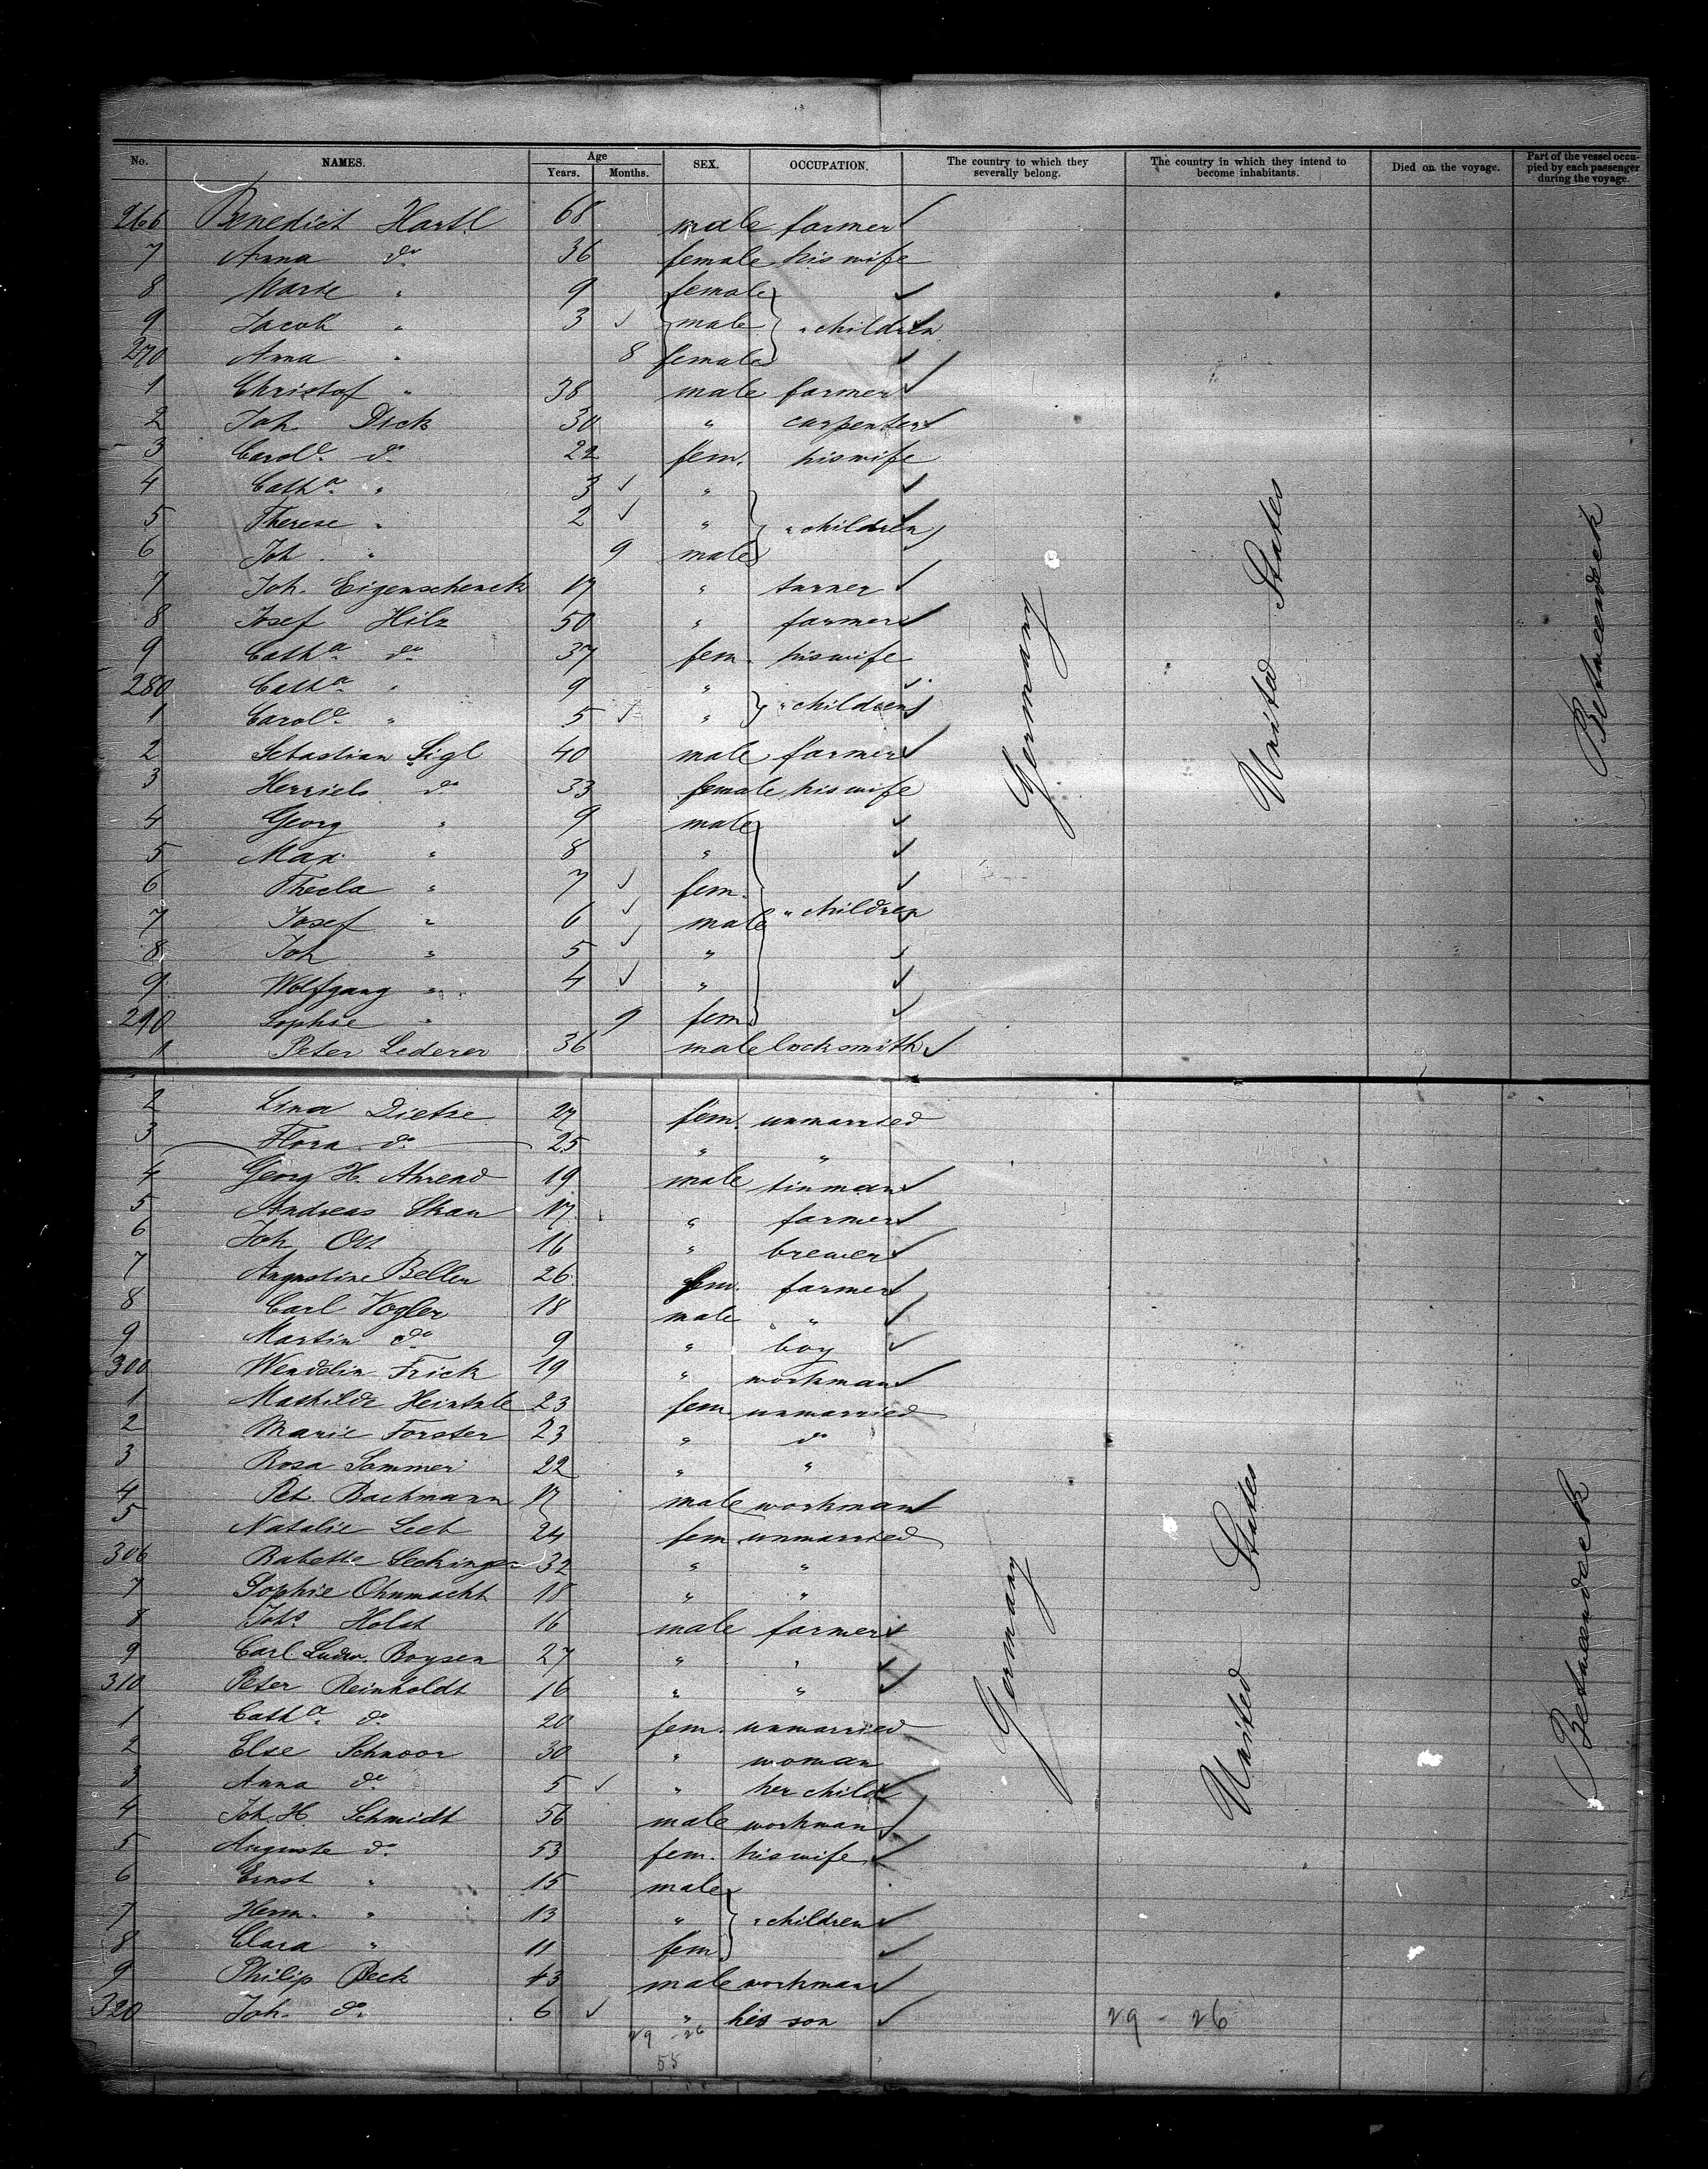 No. NAMES. Age Years. Months. SEX. OCCUPATION. The country to which they severally belong. The country in which they intend to become inhabitants. Died on the voyage. Part of the vessel occupied by each passenger during the voyage.
266 Benedict Hartl 68 male farmer
7 Anna do 36 female his wife
8 Marie " 9 female
9 Jacob " 3 male " children
270 Anna " 8 female
1 Christof " 38 male farmer
2 Joh. Dick 30 " carpenter
3 Carole. do 22 fem. his wife
4 Catha. " 3 "
5 Therese " 2 " " children
6 Joh. " 9 male
7 Joh. Eigenschenck 17 " turner
8 Josef Hilz 50 " farmer
9 Catha. do 37 fem. his wife
280 Catha. " 9 "
1 Carole. " 5 " " children
2 Sebastian Sigl 40 male farmer
3 do 33 female his wife
4 Georg " 9 male
5 Max " 8 "
6 Thecla " 7 fem.
7 Josef " 6 male " children
8 Joh " 5 "
9 Wolfgang " 4 "
290 Sophie " 9 fem
1 Peter Lederer 36 male locksmith
Germany United States Betweendeck
2 Lina Dietze 27 fem. unmarried
3 Flora do 25 " "
4 Georg H. Ahrend 19 male tinman
5 Andreas 17 " farmer
6 Joh. Ott 16 " brewer
7 Augustine Beller 26 fem. farmer
8 Carl Vogler 18 male "
9 Martin do 9 " boy
300 Wendelin Frick 19 " workman
1 Mathilde Heintzle 23 fem unmarried
2 Marie Forster 23 " do
3 Rosa Sommer 22 " "
4 Pet. Bachmann 17 male workman
5 Natalie Leeb 24 fem unmarried
306 Babette Seckinger 32 " "
7 Sophie Ohnmacht 18 " "
8 Johs Holst 16 male farmer
9 Carl Ludw. Boysen 27 " "
310 Peter Reinholdt 16 " "
1 Catha. do 20 fem. unmarried
2 Else Schnoor 30 " woman
3 Anna do 5 " her child
4 Joh. H. Schmidt 56 male workman
5 Auguste do 53 fem. his wife
6 Ernst " 15 male
7 Herm. " 13 " " children
8 Clara " 11 fem
9 Philip Beck 43 male workman
320 Joh. do 6 " his son
Germany United States Betweendeck
29 - 26
55
29 - 26